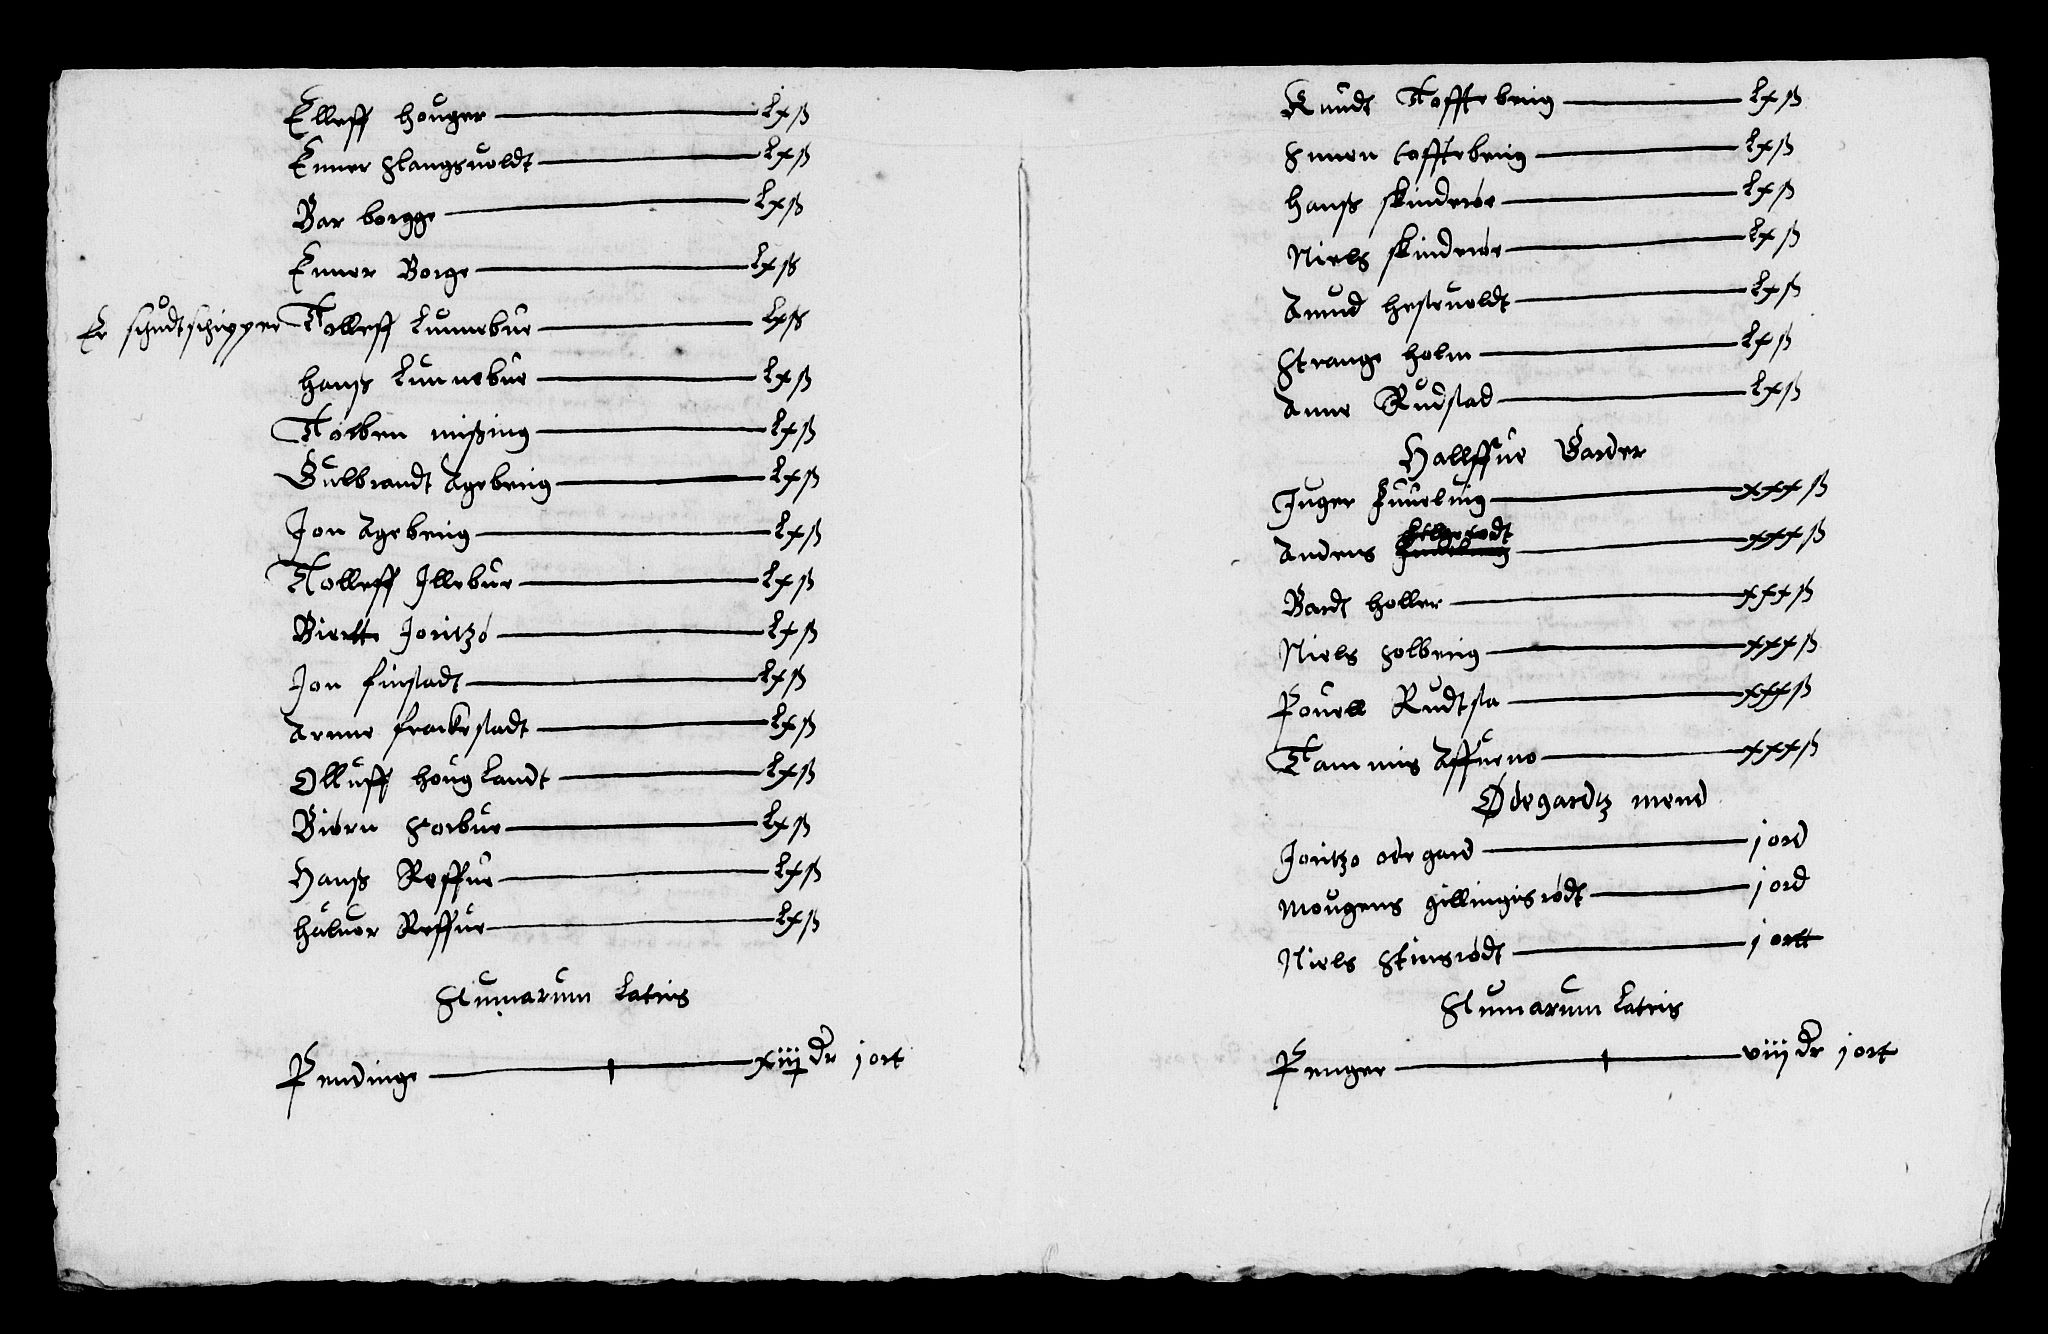 Elleff houger — Lxß
Enner Slangsuoldt — Lxß
Bar borgge — Lxß
Enner Borge — Lxß
Er schudtschipper Tolleff Lunnebue — Lxß
hanß Lunnebue — Lxß
Torben mißing — Lxß
Gulbrandt Agebierig — Lxß
Jon Agebierig — Lxß
Tolleff Illebue — Lxß
Biertte Joritzo — Lxß
Jon finstadt — Lxß
Arnne frackestadt — Lxß
Olluff houg Landt — Lxß
Biørn Sorbue — Lxß
Hanß Reffue — Lxß
haluor Reffue — Lxß
Sumarum Lateris
Pendinge — xiij dr j ort
Knudt Toffteberig — Lxß
Suuen toffteberig — Lxß
hanß skinderøe — Lxß
Niels skinderøe — Lxß
Amund hesteuoldt — Lxß
Strange holm — Lxß
Anne Rudstad — Lxß
Hallffue Garder
Juger — xxxß
Anders — xxxß
Bardt holler — xxxß
Niels Solberig — xxxß
Pouell Rudtsta — xxxß
Tammis Affueno — xxxß
Ødegardtz mend
Joritzo ode gard — j ord
Mougens gillingisrødt — j ord
Niels Stinsrødt — j ortt
Sumarum Lateris
Penger — viij dr j ort